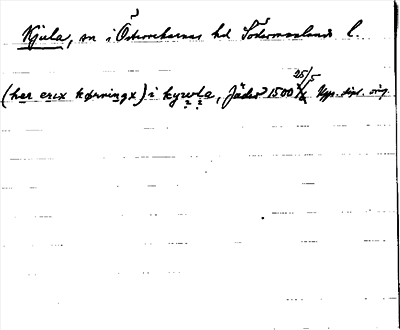 Kjula, sn i Österrekarnes hd Södermanlands l.
(har erix kørningx) i kywla, Jäder 1500 25/5 Upps. dipl. orig.